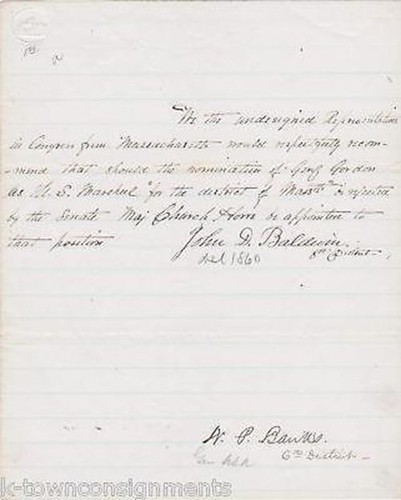 We the undersigned Representatives
in Congress from Massachusetts would respectfully recom-
-mend that should the nomination of Genl Gordon
as U. S. Marshal for the district of Masstts is rejected
by the Senate Maj Church Howe be appointed to
that position
John D. Baldwin.
8th District
del 1860
N. P. Banks.
6th District
k-townconsignments